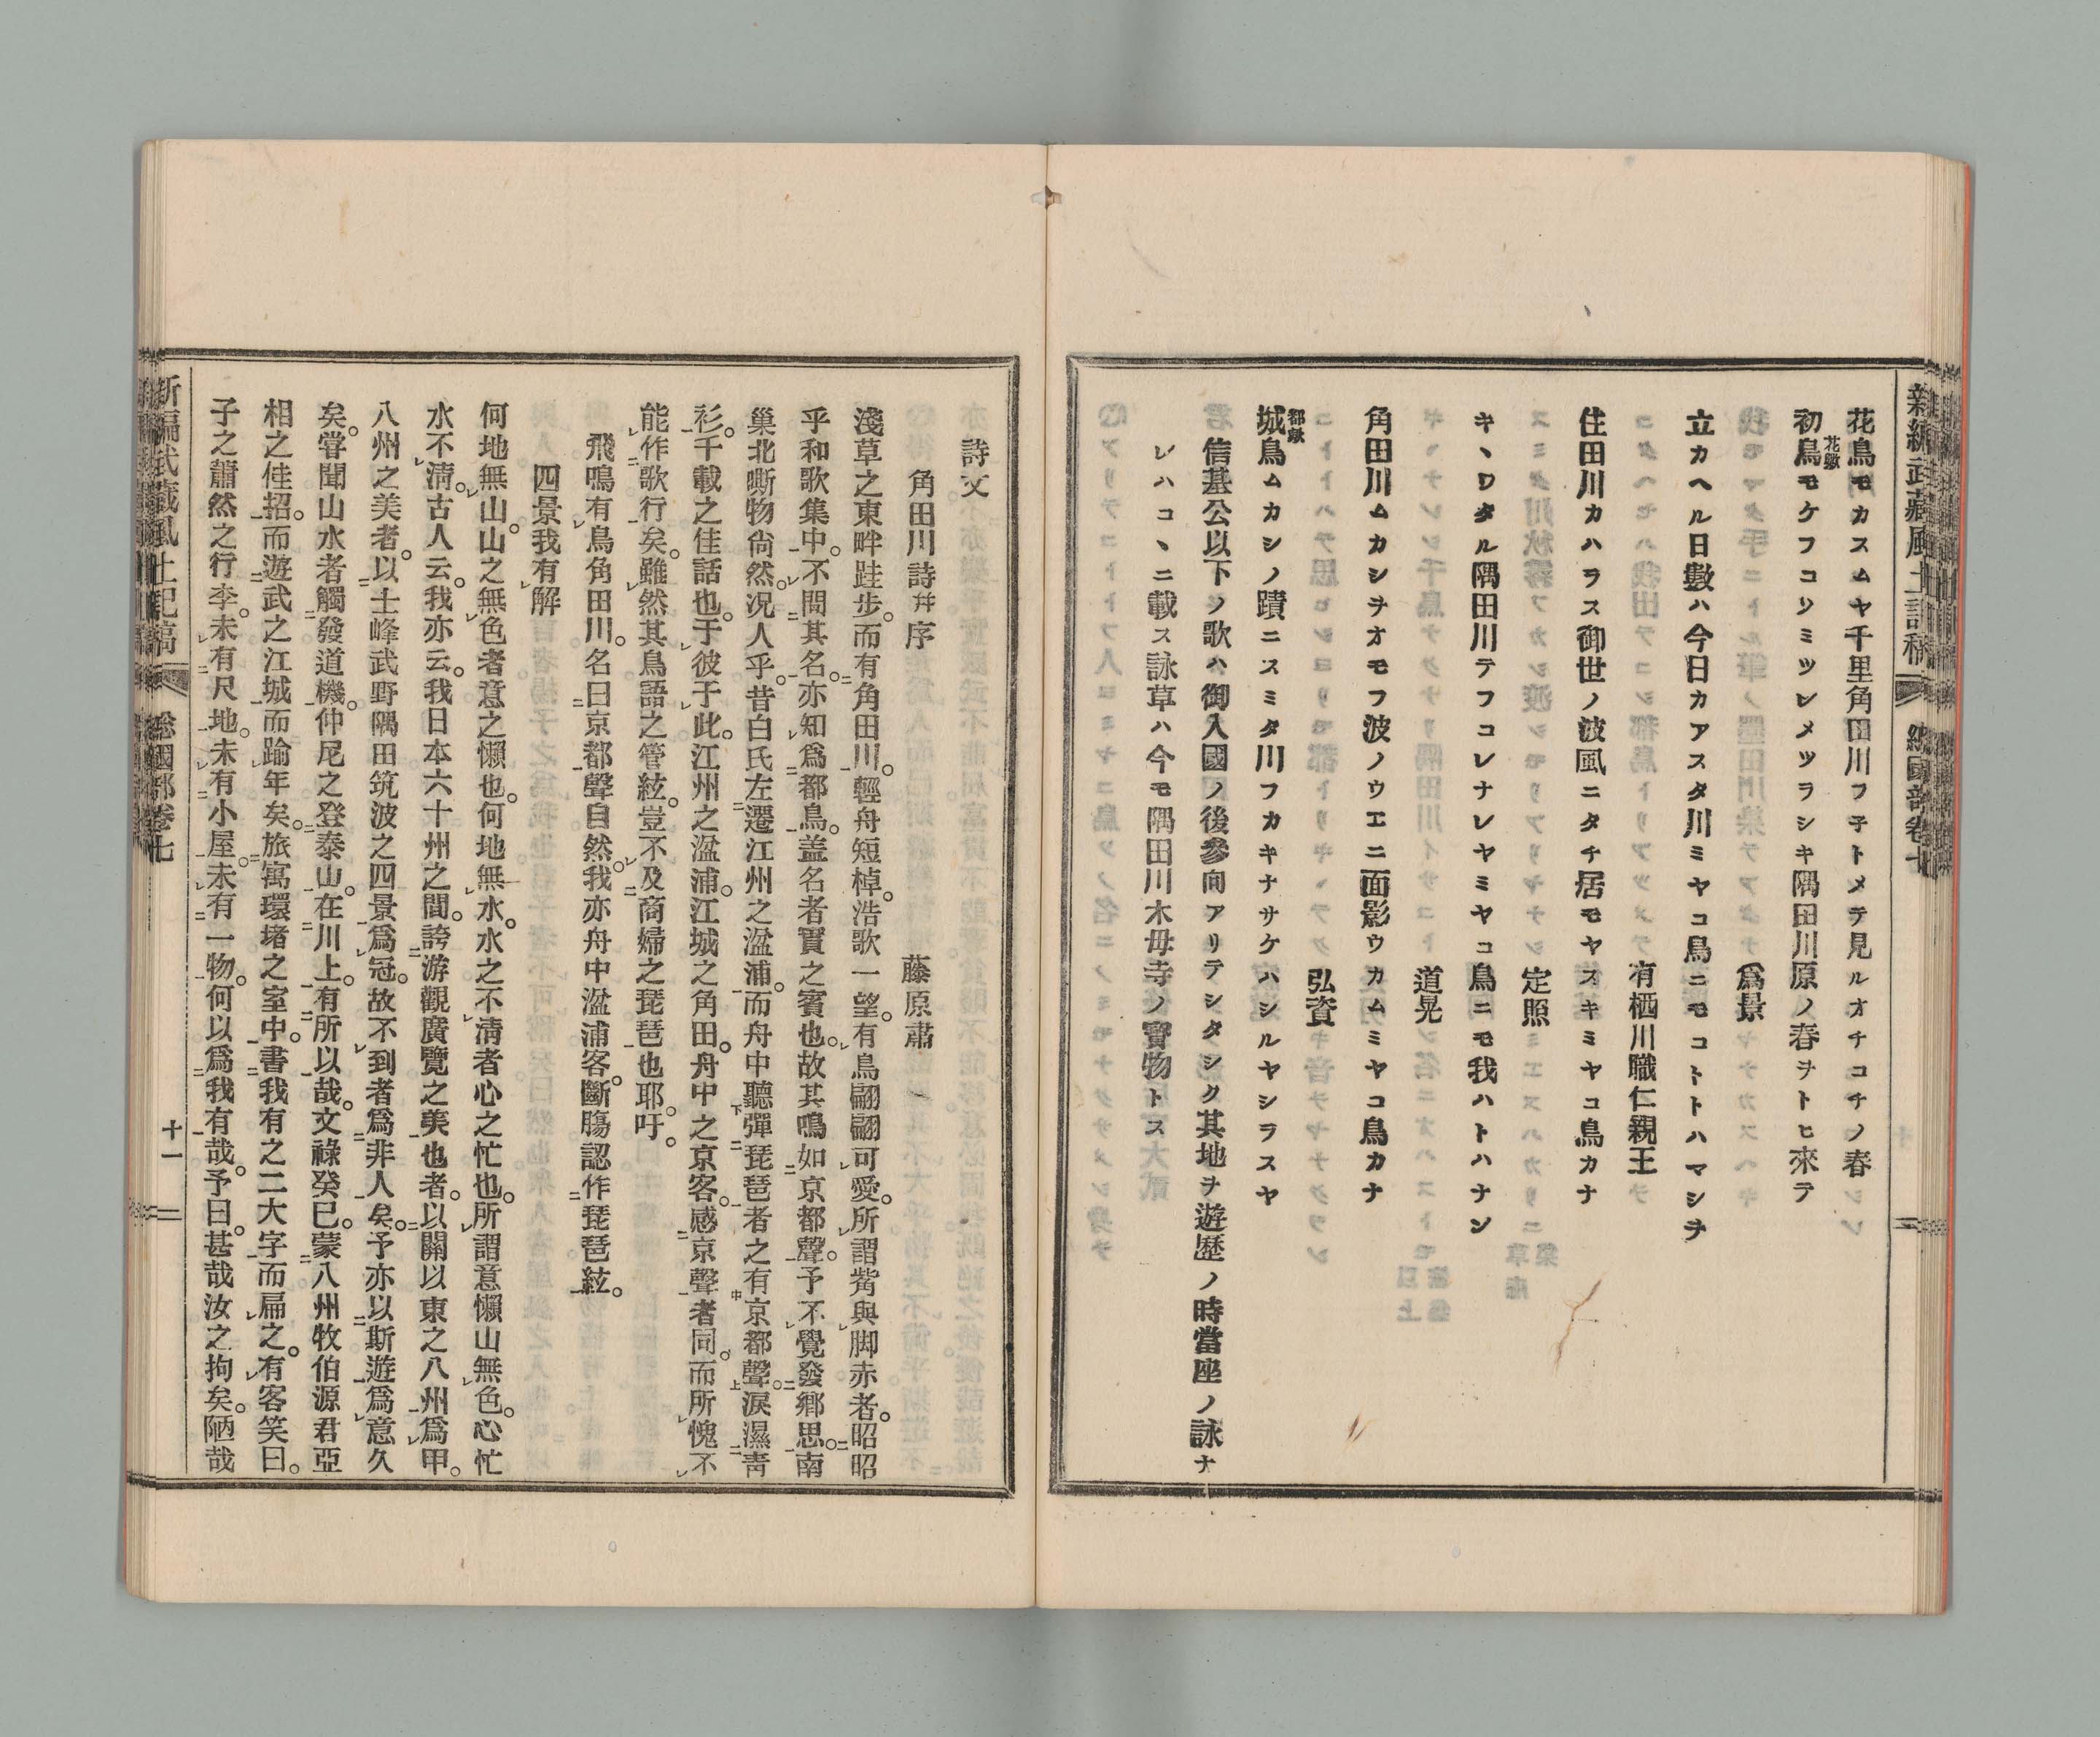 新編武藏風土記稿 總國部卷七
花鳥モカスムヤ千里角田川フ子トメテ見ルオチコチノ春
初鳥モケフコソミツレメツラシキ隅田川原ノ春ヲトヒ來テ
花歟
爲景
立カヘル日數ハ今日カアスタ川ミヤコ鳥ニモコトトハマシヲ
有栖川職仁親王
住田川カハラス御世ノ波風ニタチ居モヤスキミヤコ鳥カナ
定照
キヽワタル隅田川テフコレナレヤミヤコ鳥ニモ我ハトハナン
道晃
角田川ムカシヲオモフ波ノウエニ面影ウカムミヤコ鳥カナ
弘資
都歟
城鳥ムカシノ蹟ニスミタ川フカキナサケハシルヤシラスヤ
信基公以下ノ歌ハ御入國ノ後參向アリテシタシク其地ヲ遊歷ノ時當座ノ詠ナ
レハコヽニ載ス詠草ハ今モ隅田川木母寺ノ寶物トス
詩文
角田川詩幷序
藤原肅
淺草之東畔跬步。而有角田川。輕舟短棹。浩歌一望。有鳥翩翩可愛。所謂觜與脚赤者。昭昭
乎和歌集中。不問其名。亦知爲都鳥。盖名者實之賓也。故其鳴如京都聲。予不覺發鄕思。南
巢北嘶物尙然。况人乎。昔白氏左遷江州之湓浦。而舟中聽彈琵琶者之有京都聲。淚濕靑
衫。千載之佳話也。于彼于此。江州之湓浦。江城之角田。舟中之京客。感京聲者同。而所愧不
能作歌行矣。雖然其鳥語之管絃。豈不及商婦之琵琶也耶。吁。
飛鳴有鳥角田川。名曰京都聲自然。我亦舟中湓浦客。斷膓認作琵琶絃。
四景我有解
何地無山。山之無色者意之懶也。何地無水。水之不淸者心之忙也。所謂意懶山無色。心忙
水不淸。古人云。我亦云。我日本六十州之間。誇游觀廣覽之美也者。以關以東之八州爲甲。
八州之美者。以士峰武野隅田筑波之四景爲冠。故不到者爲非人矣。予亦以斯遊爲意久
矣。甞聞山水者觸發道機。仲尼之登泰山。在川上。有所以哉。文祿癸巳。蒙八州牧伯源君亞
相之佳招。而遊武之江城而踰年矣。旅寓環堵之室中。書我有之二大字而扁之。有客笑曰。
子之蕭然之行李。未有尺地。未有小屋。未有一物。何以爲我有哉。予曰。甚哉汝之拘矣。陋哉
新編武藏風土記稿 總國部卷七 十一